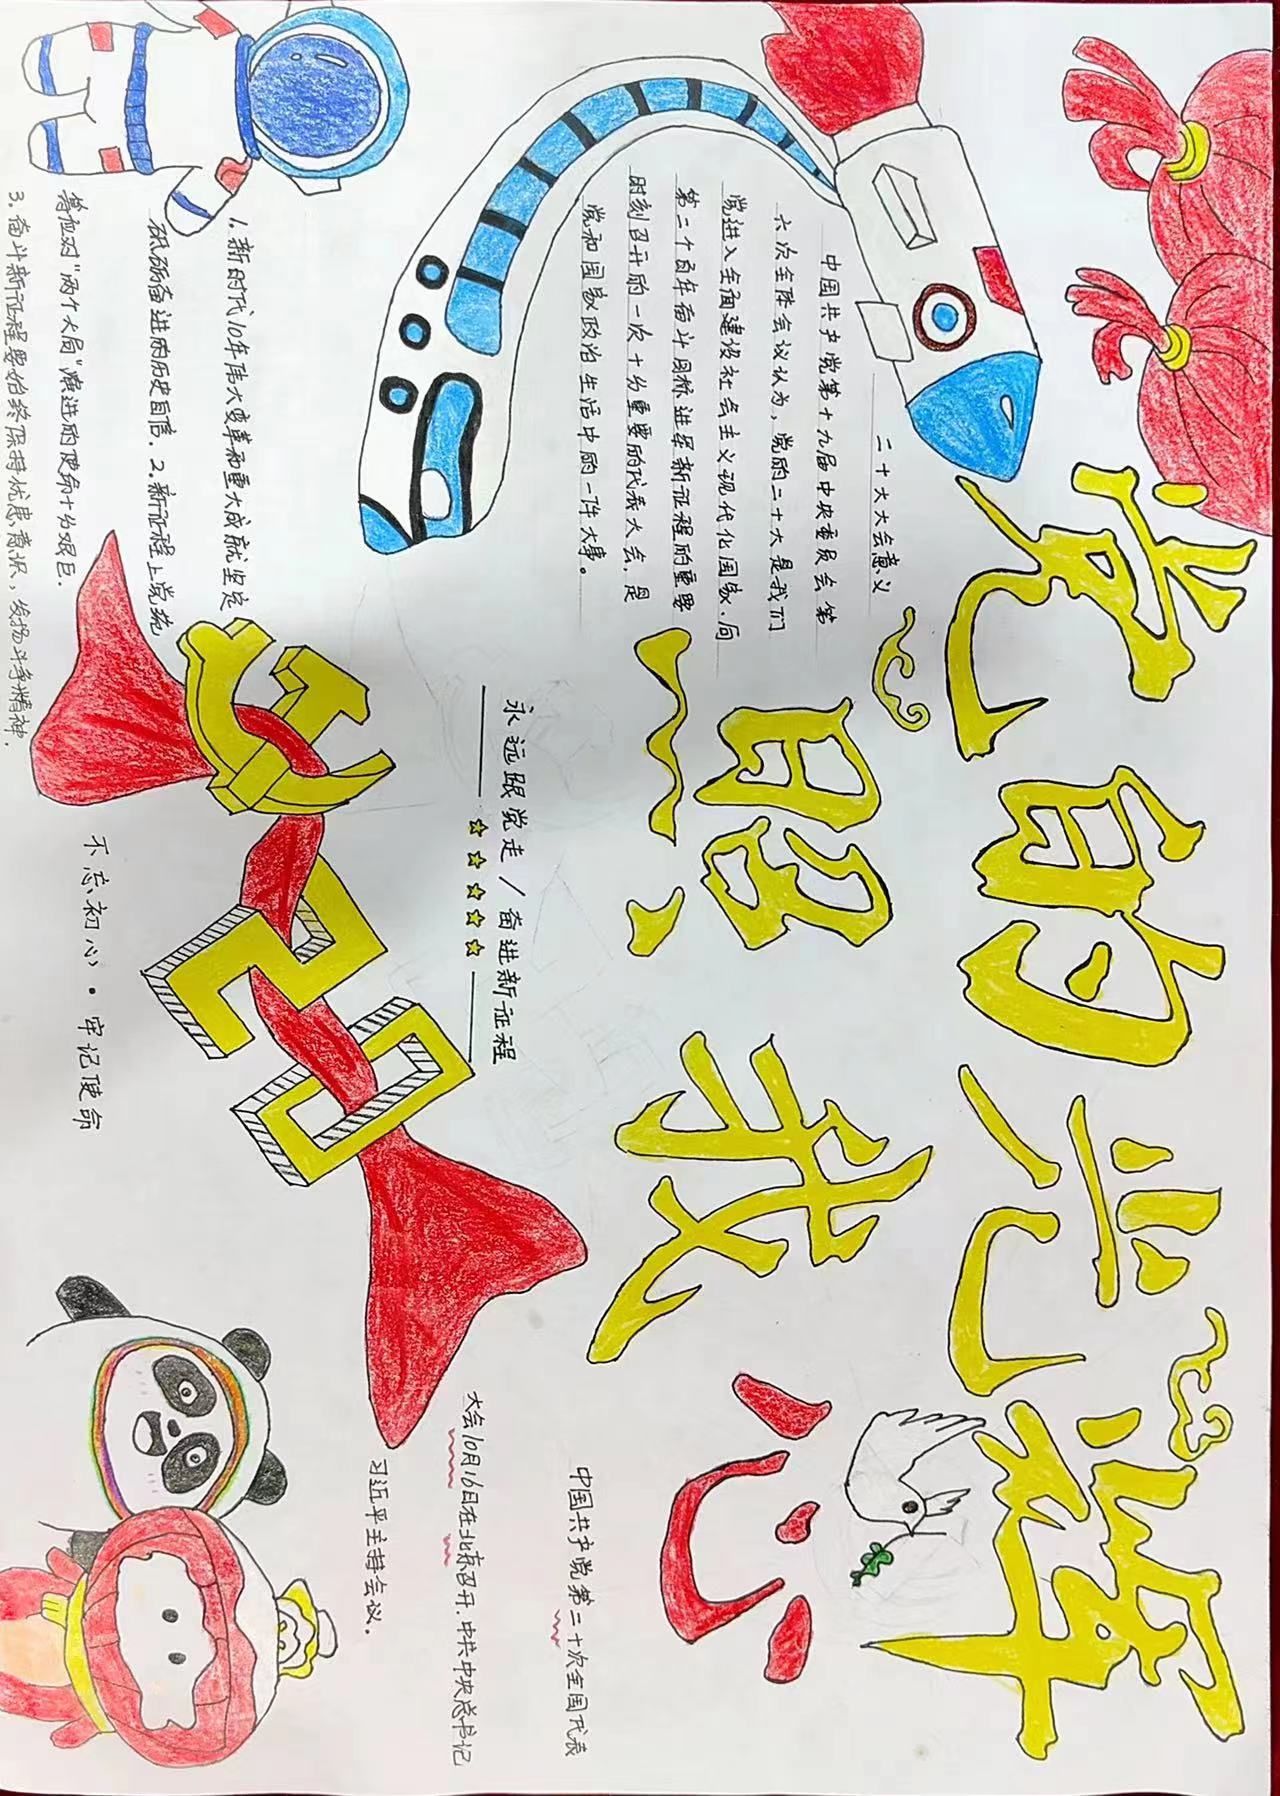 党的光辉
照我心
二十大大会意义
中国共产党第十九届中央委员会第
六次全体会议认为，党的二十大是我们
党进入全面建设社会主义现代化国家、向
第二个百年奋斗目标进军新征程的重要
时刻召开的一次十分重要的代表大会，是
党和国家政治生活中的一件大事。
永远跟党走/奋进新征程
中国共产党第二十次全国代表
大会10月16日在北京召开.中共中央总书记
习近平主持会议.
1.新时代10年伟大变革和重大成就坚定
砥砺奋进的历史自信.2.新征程上党统
筹应对"两个大局"演进的使命十分艰巨.
3.奋斗新征程要始终保持忧患意识、发扬斗争精神.
20
不忘初心·牢记使命